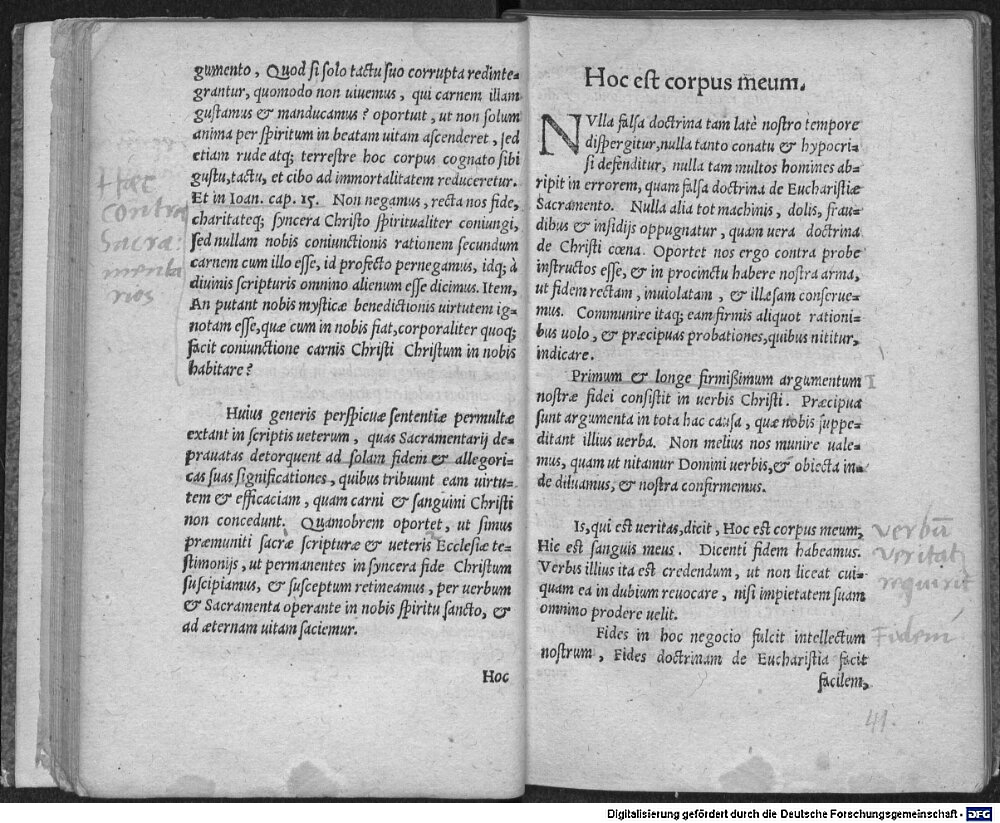 gumento, Quod si solo tactu suo corrupta redinte-
grantur, quomodo non uiuemus, qui carnem illam
gustamus & manducamus? oportuit, ut non solum
anima per spiritum in beatam uitam ascenderet, sed
etiam rude atq; terrestre hoc corpus cognato sibi
gustu, tactu, et cibo ad immortalitatem reduceretur.
Et in Ioan. cap. 15. Non negamus, recta nos fide,
charitateq; syncera Christo spiritualiter coniungi,
sed nullam nobis coniunctionis rationem secundum
carnem cum illo esse, id profecto pernegamus, idq; à
diuinis scripturis omnino alienum esse dicimus. Item,
An putant nobis mysticæ benedictionis uirtutem ig-
notam esse, quæ cum in nobis fiat, corporaliter quoq;
facit coniunctione carnis Christi Christum in nobis
habitare?
Hæc
contra
Sacra:
menta
rios
Huius generis perspicuæ sententiæ permultæ
extant in scriptis ueterum, quas Sacramentarij de-
prauatas detorquent ad solam fidem & allegori-
cas suas significationes, quibus tribuunt eam uirtu-
tem & efficaciam, quam carni & sanguini Christi
non concedunt. Quamobrem oportet, ut simus
præmuniti sacræ scripturæ & ueteris Ecclesiæ te-
stimonijs, ut permanentes in syncera fide Christum
suscipiamus, & susceptum retineamus, per uerbum
& Sacramenta operante in nobis spiritu sancto, &
ad æternam uitam saciemur.
Hoc
Hoc est corpus meum.
NVlla falsa doctrina tam latè nostro tempore
dispergitur, nulla tanto conatu & hypocri-
si defenditur, nulla tam multos homines ab-
ripit in errorem, quam falsa doctrina de Eucharistiæ
Sacramento. Nulla alia tot machinis, dolis, frau-
dibus & insidijs oppugnatur, quam uera doctrina
de Christi cœna. Oportet nos ergo contra probe
instructos esse, & in procinctu habere nostra arma,
ut fidem rectam, inuiolatam, & illæsam conserue-
mus. Communire itaq; eam firmis aliquot rationi-
bus uolo, & præcipuas probationes, quibus nititur,
indicare.
Primum & longe firmißimum argumentum
nostræ fidei consistit in uerbis Christi. Præcipua
sunt argumenta in tota hac causa, quæ nobis suppe-
ditant illius uerba. Non melius nos munire uale-
mus, quam ut nitamur Domini uerbis, & obiecta in-
de diluamus, & nostra confirmemus.
1
Is, qui est ueritas, dicit, Hoc est corpus meum,
Hic est sanguis meus. Dicenti fidem habeamus.
Verbis illius ita est credendum, ut non liceat cui-
quam ea in dubium reuocare, nisi impietatem suam
omnino prodere uelit.
verbū
veritat
requirit
Fidem
Fides in hoc negocio fulcit intellectum
nostrum, Fides doctrinam de Eucharistia facit
facilem,
41.
Digitalisierung gefördert durch die Deutsche Forschungsgemeinschaft - DFG